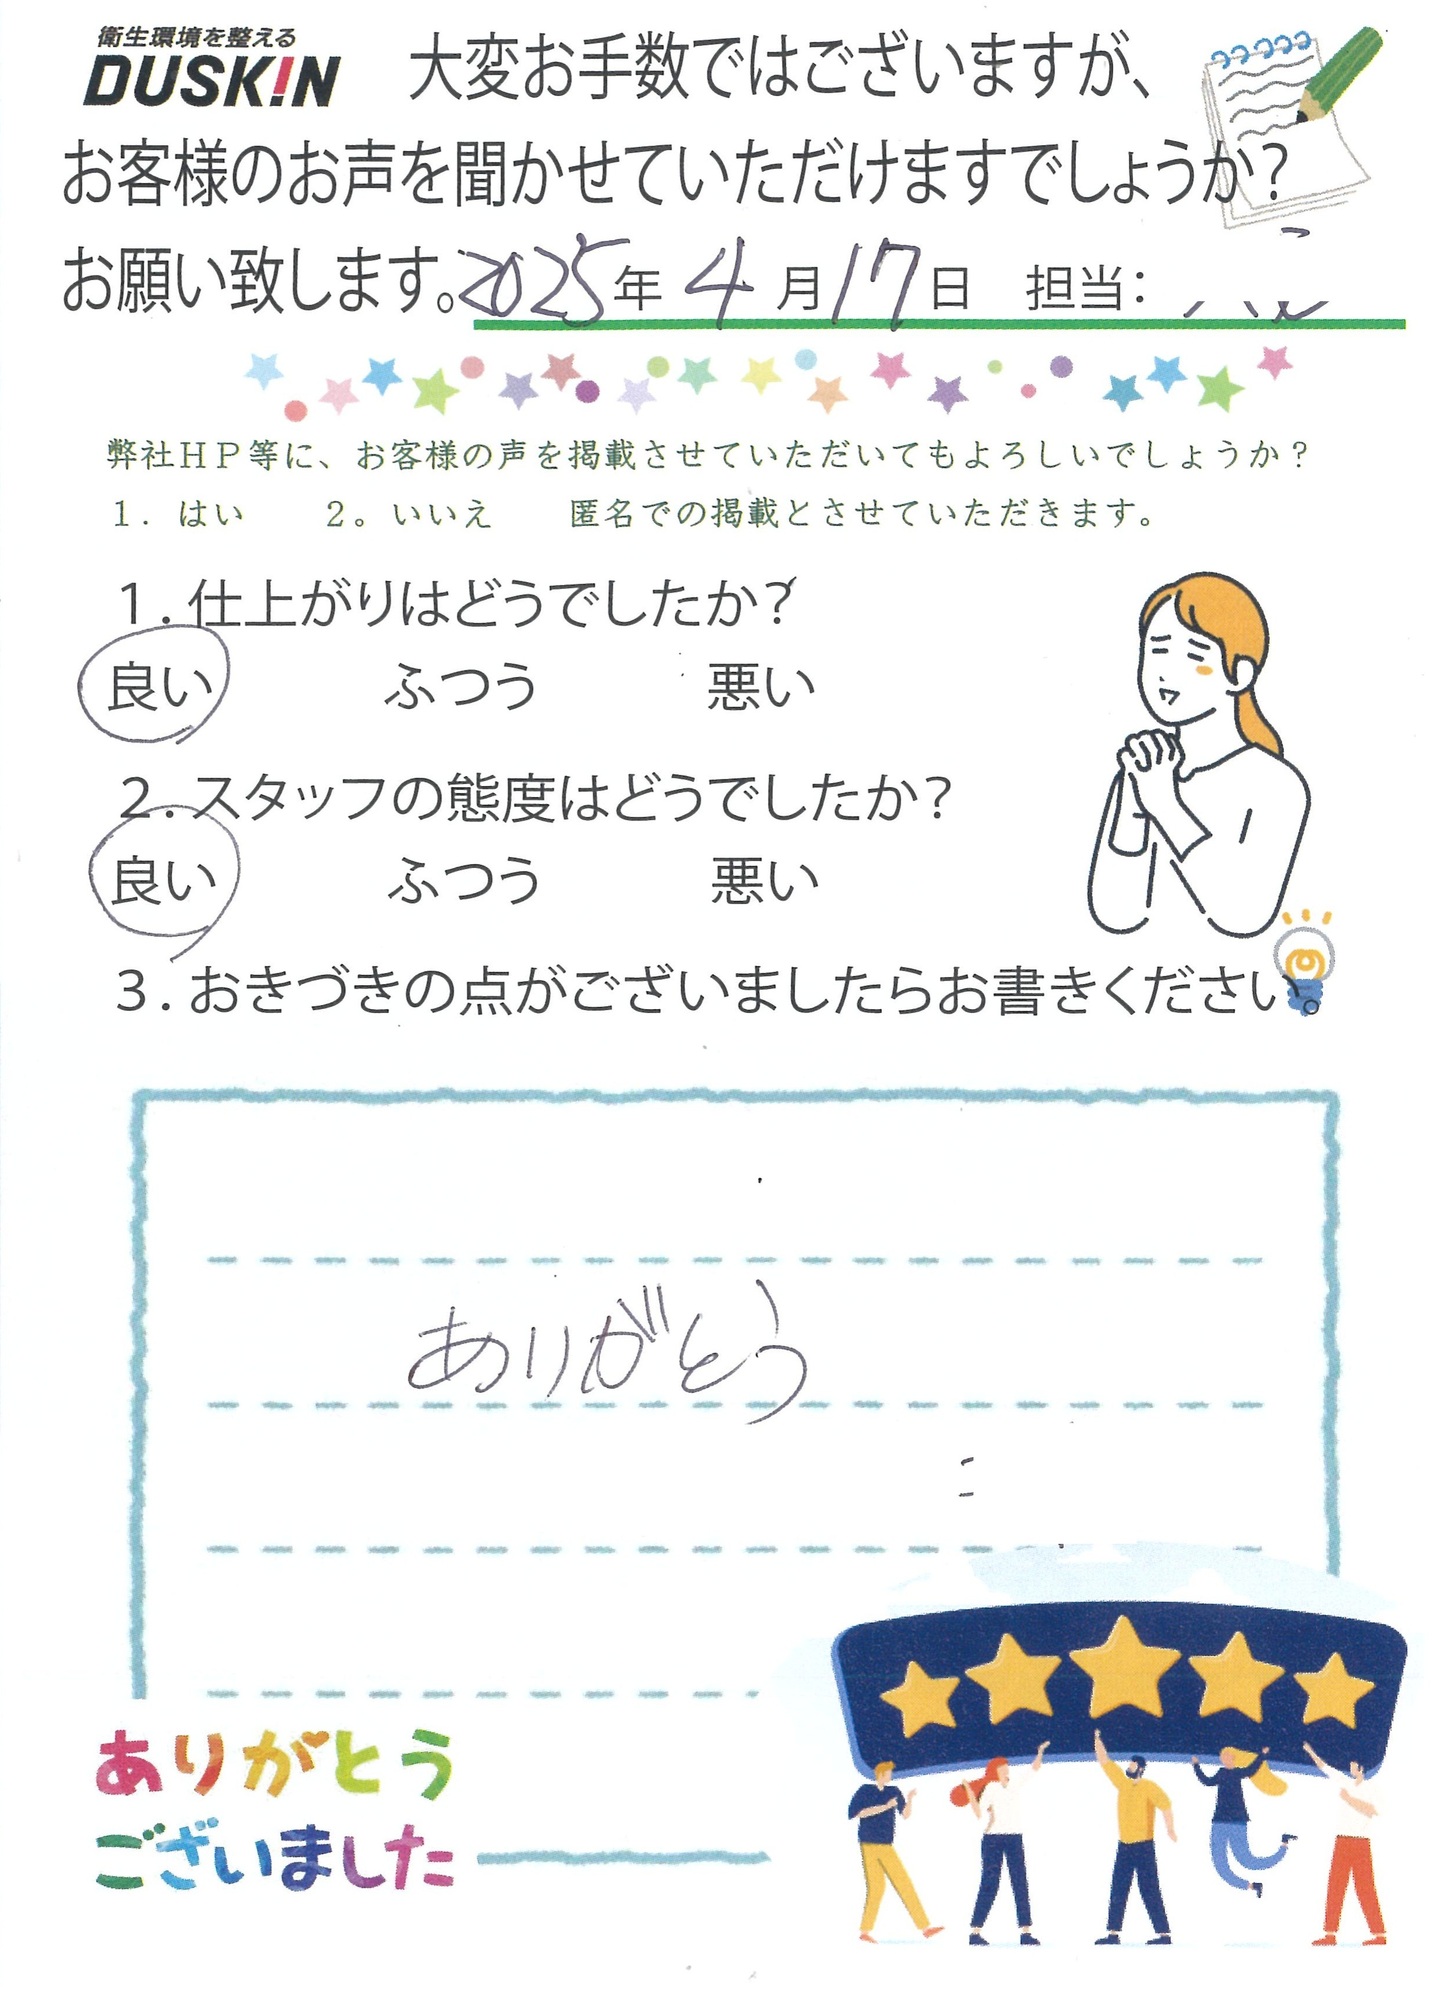 衛生環境を整える
DUSKIN
大変お手数ではございますが、
お客様のお声を聞かせていただけますでしょうか?
お願い致します。2025年 4月17日 担当:
弊社HP等に、お客様の声を掲載させていただいてもよろしいでしょうか?
1. はい 2。いいえ 匿名での掲載とさせていただきます。
1. 仕上がりはどうでしたか?
良い ふつう 悪い
2. スタッフの態度はどうでしたか?
良い ふつう 悪い
3. おきづきの点がございましたらお書きください。
ありがとう
ありがとう
ございました